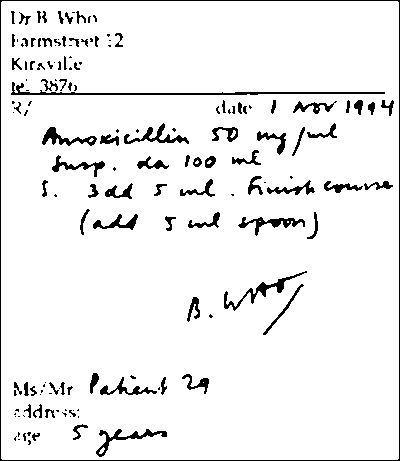 Dr B. Who
Farmstreet 12
Kirkville
tel. 3876
R/ date 1 Nov 1994
Amoxicillin 50 mg/ml
susp. da 100 ml
S. 3dd 5 ml. Finish course
(add 5 ml spoon)
B. Who
Ms/Mr Patient 29
address:
age 5 years